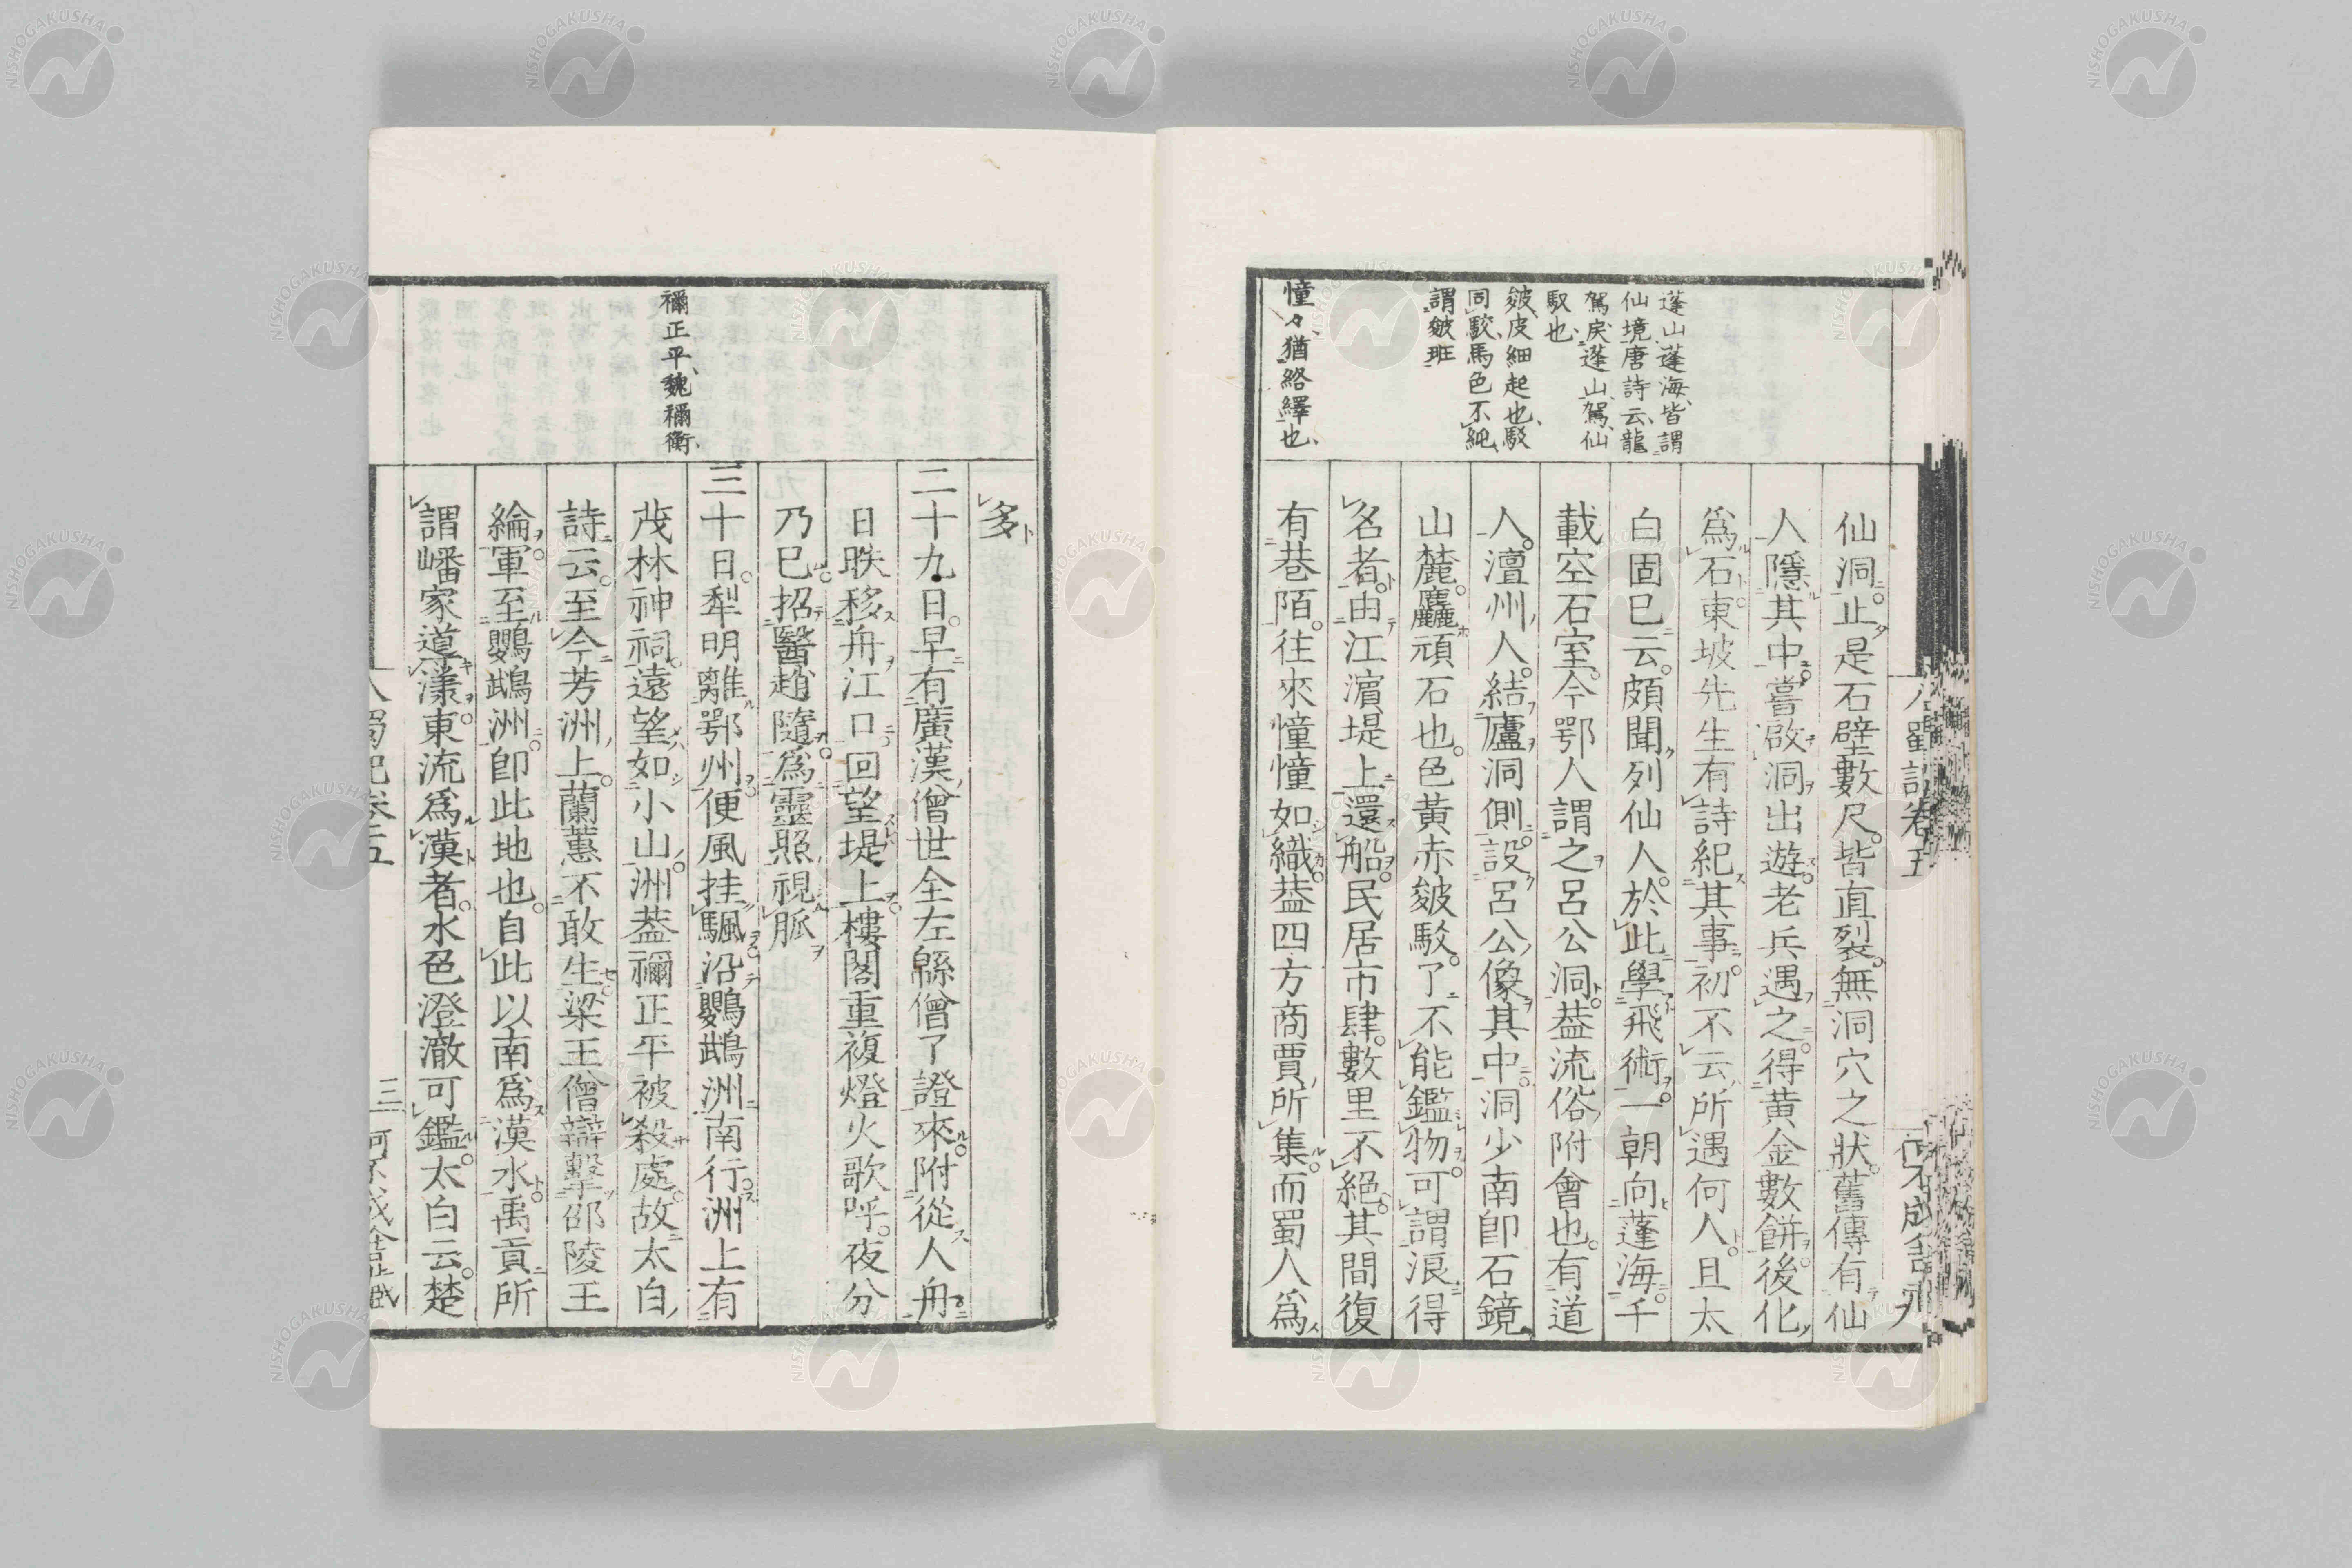 蓬山、蓬海、皆謂
仙境唐詩云、龍
駕戻蓬山、駕、仙
馭也、
皴、皮細起也、駁
同駮、馬色不純、
謂皴班
憧々、猶絡繹也、
入蜀記卷五
仙洞。止是石壁數尺。皆直裂。無洞穴之狀。舊傳有仙
人隱其中。嘗啟洞出遊。老兵遇之。得黃金數餅。後化
爲石。東坡先生有詩紀其事。初不云所遇何人。且太
白固已云。頗聞列仙人。於此學飛術。一朝向蓬海。千
載空石室。今鄂人謂之呂公洞。葢流俗附會也。有道
人。澶州人。結廬洞側。設呂公像其中。洞少南即石鏡
山麓。麤頑石也。色黃赤皴駁。了不能鑑物。可謂浪得
名者。由江濵堤上還船。民居市肆。數里不絕。其間復
有巷陌。往來憧憧如織。葢四方商賈所集。而蜀人爲
禰正平、魏禰衡、
多
二十九日。早有廣漢僧世全左緜僧了證來。附從人舟
日昳移舟江口。回望堤上。樓閣重複。燈火歌呼。夜分
乃已。招醫趙隨爲靈照視脈
三十日。犁明離鄂州。便風挂颿。沿鸚鵡洲南行。洲上有
茂林神祠。遠望如小山。洲葢禰正平被殺處。故太白
詩云。至今芳洲上。蘭蕙不敢生。梁王僧辯擊邵陵王
綸。軍至鸚鵡洲。即此地也。自此以南爲漢水。禹貢所
謂嶓冢導漾。東流爲漢者。水色澄澈可鑑。太白云。楚
入蜀記卷五
三